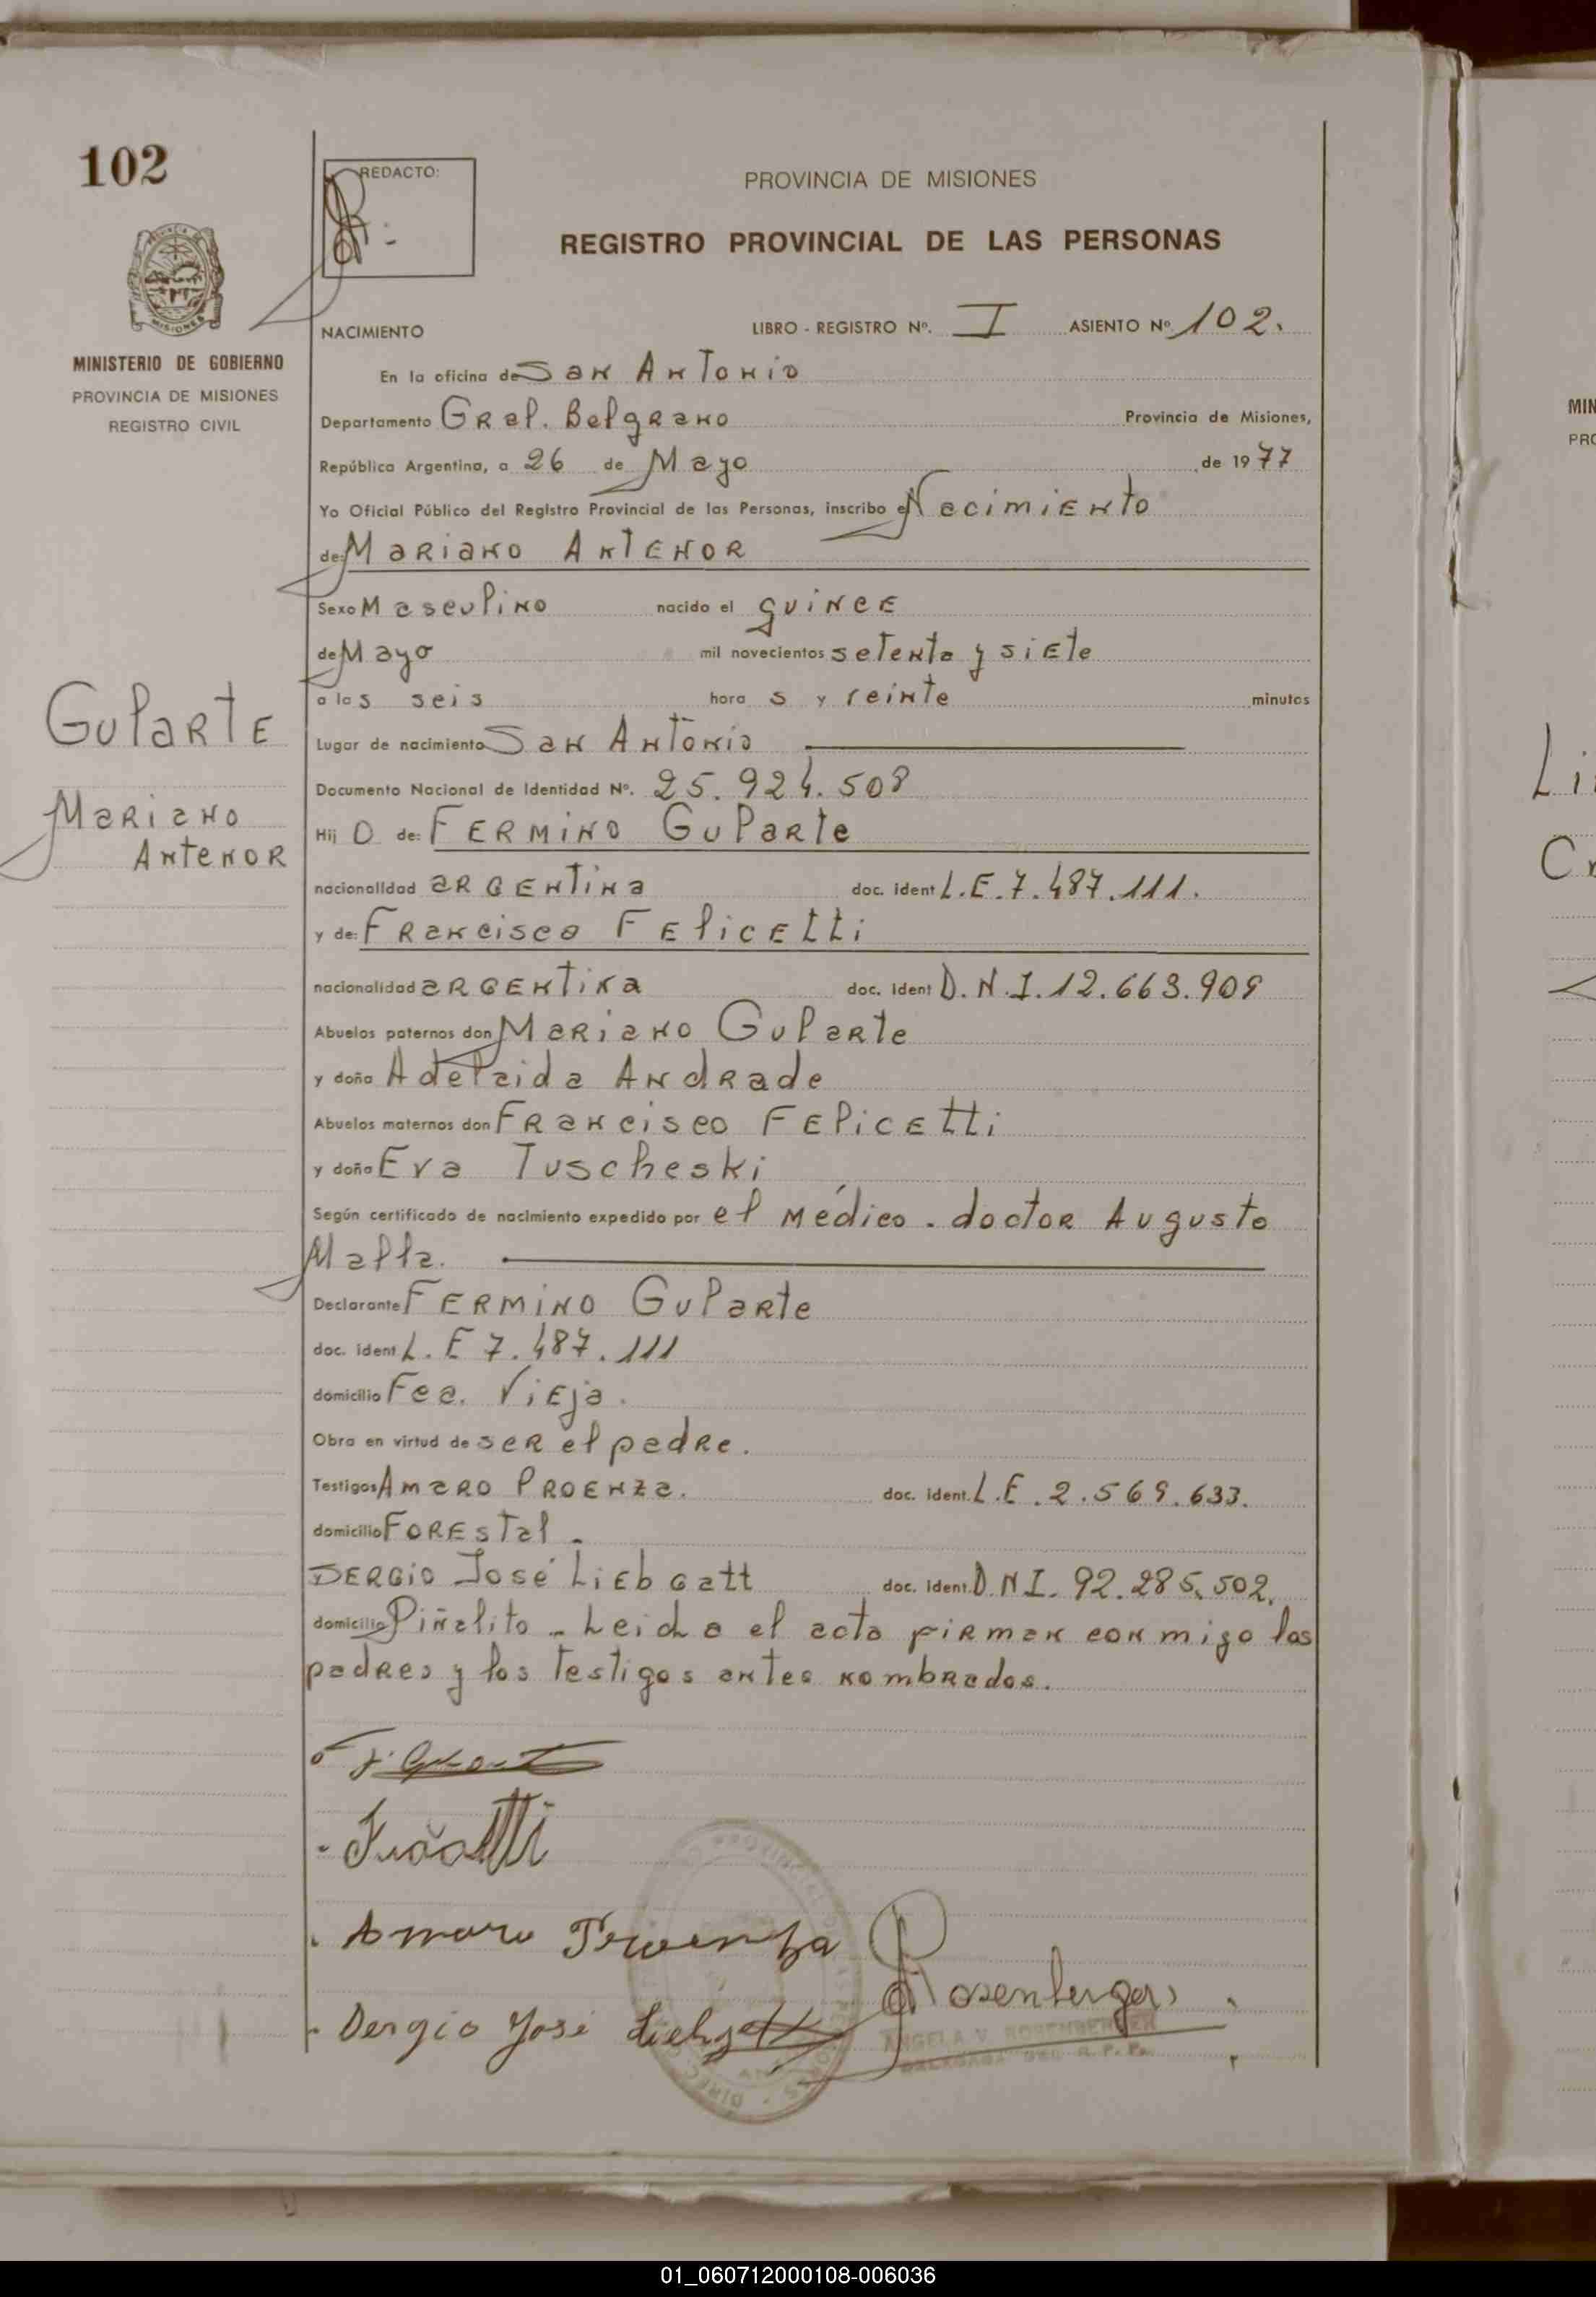 102
REDACTO:
PROVINCIA DE MISIONES
REGISTRO PROVINCIAL DE LAS PERSONAS
MISIONES
MINISTERIO DE GOBIERNO
PROVINCIA DE MISIONES
REGISTRO CIVIL
NACIMIENTO LIBRO - REGISTRO Nº. I ASIENTO Nº 102.
En la oficina de San Antonio
Departamento Gral. Belgrano Provincia de Misiones,
República Argentina, a 26 de Mayo de 1977
Yo Oficial Público del Registro Provincial de las Personas, inscribo el Nacimiento
de: Mariano Antenor
Sexo Masculino nacido el quince
de Mayo mil novecientos setenta y siete
a las seis hora s y veinte minutos
Gularte
Mariano
Antenor
Lugar de nacimiento San Antonio
Documento Nacional de Identidad Nº. 25.924.508
Hij o de: Fermino Gularte
nacionalidad argentina doc. ident L.E. 7.487.111.
y de: Francisca Felicetti
nacionalidad argentina doc. ident D.N.I. 12.663.909
Abuelos paternos don Mariano Gularte
y doña Adelaida Andrade
Abuelos maternos don Francisco Felicetti
y doña Eva Tuscheski
Según certificado de nacimiento expedido por el médico. doctor Augusto
Malla.
Declarante Fermino Gularte
doc. ident L.E 7.487.111
domicilio Fca. Vieja.
Obra en virtud de ser el padre.
Testigos Amaro Proenza. doc. ident. L.E. 2.569.633.
domicilio Forestal.
Sergio José Liebgatt doc. ident. D.N.I. 92.285.502.
domicilio Piñalito. Leida el acta firman conmigo los
padres y los testigos antes nombrados.
Amaro Proenza
Rosenberger
Sergio José Liebgatt
ANGELA V. ROSENBERGER
DELEGADA DEL R.P.P.
MIN
PRO
Li
Cr
01_060712000108-006036